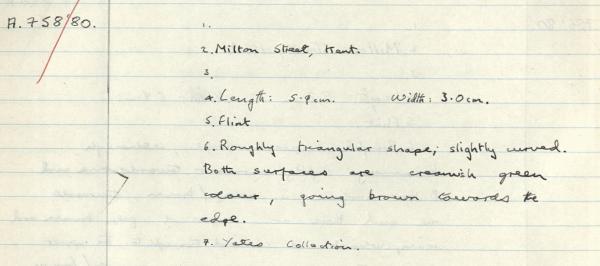 A.758'80.
1.
2. Milton Street, Kent.
3.
4. Length: 5.9cm. Width: 3.0cm.
5. Flint
6. Roughly triangular shape; slightly curved.
Both surfaces are creamish green
colour, going brown towards the
edge.
7. Yates Collection.